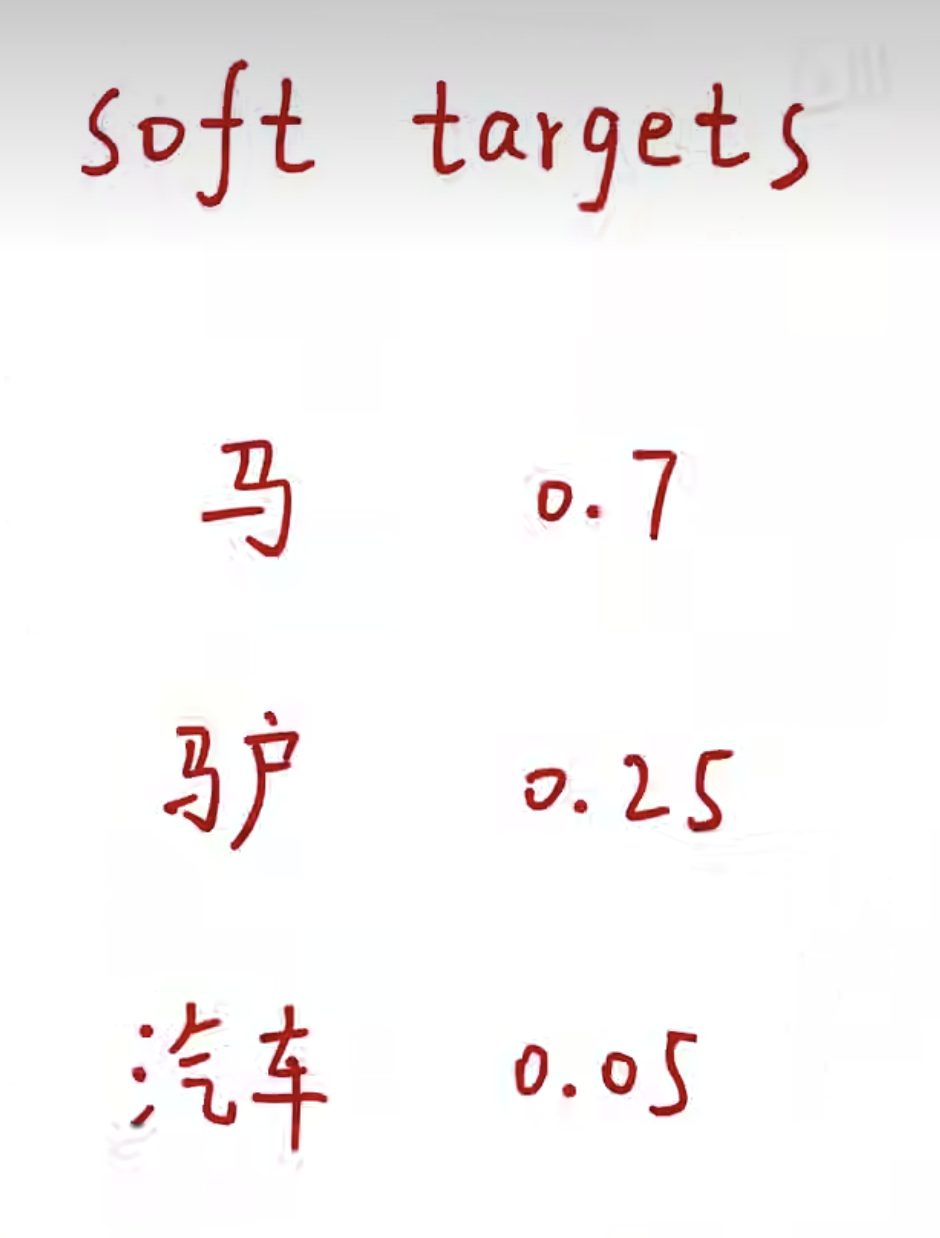 soft targets
马 0.7
驴 0.25
汽车 0.05